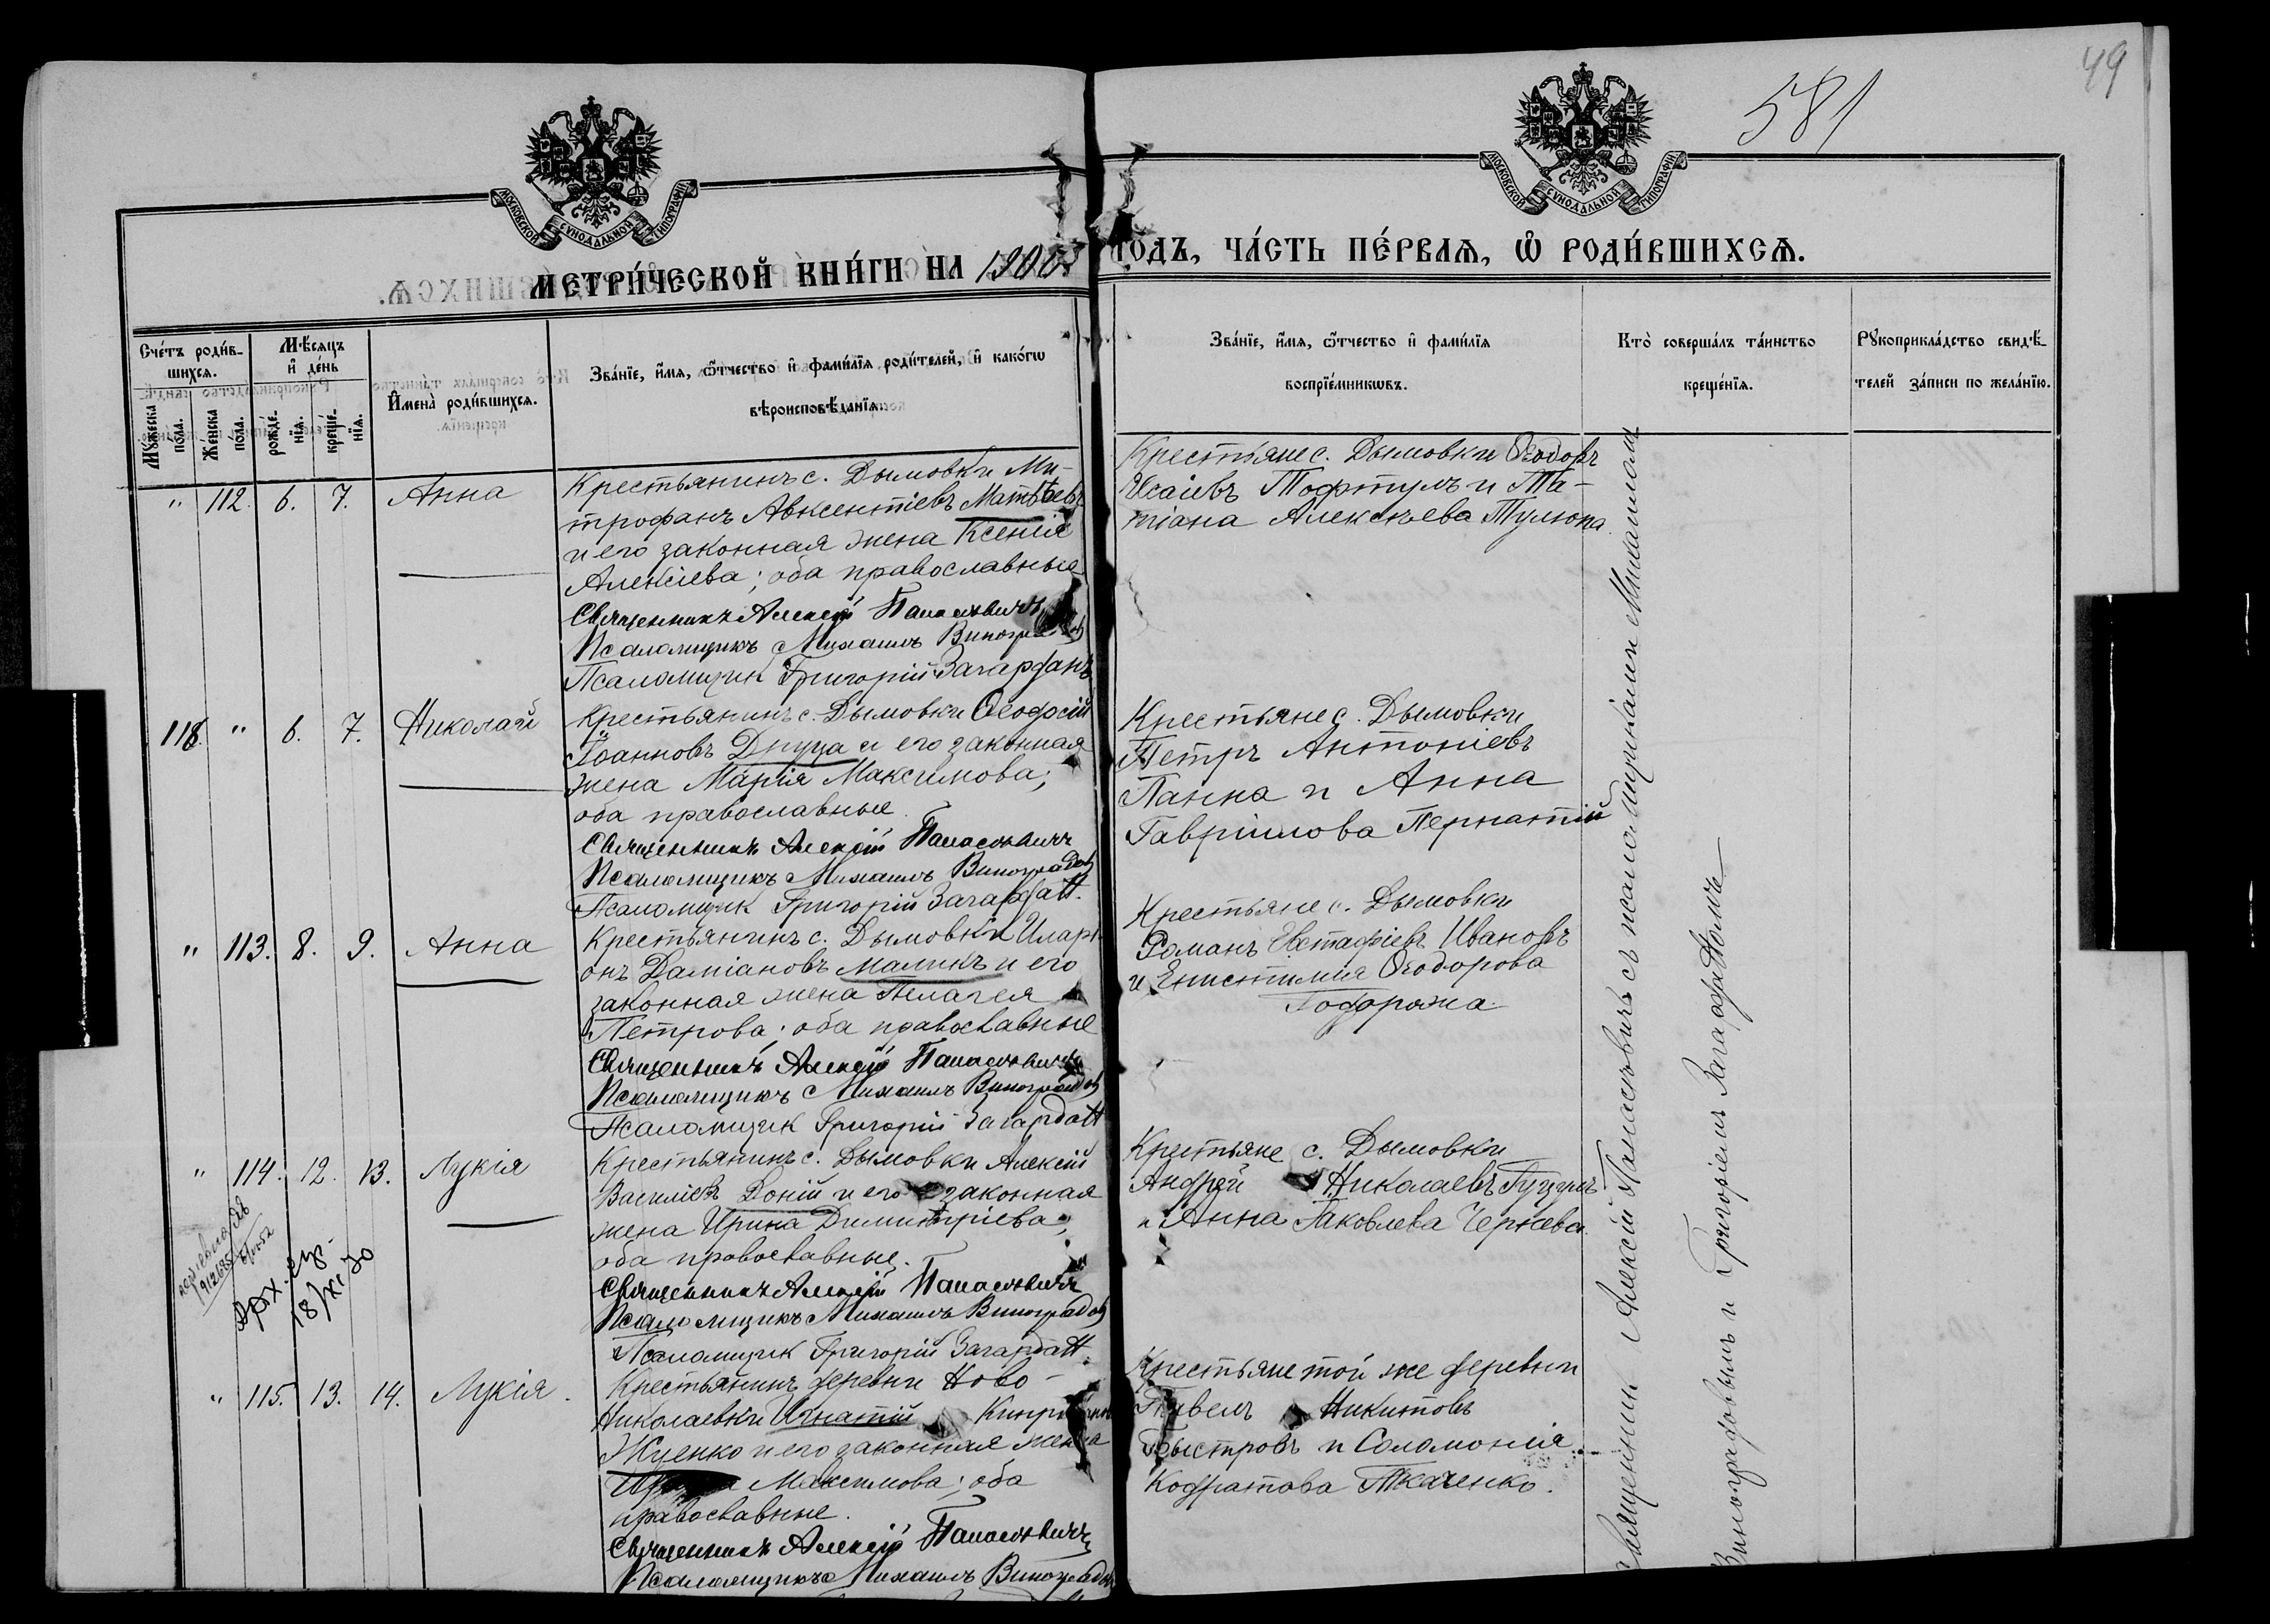 49
581
МОСКОВСКОЙ СѴНОДАЛЬНОЙ ТИПОГРАФІИ
МОСКОВСКОЙ СѴНОДАЛЬНОЙ ТИПОГРАФІИ
МЕТРИ́ЧЕСКОЙ КНИ́ГИ НА 1900
ГОДЪ, ЧА́СТЬ ПЕ́РВАѦ, Ѡ҆ РОДИ́ВШИХСѦ.
Сче́тъ роди́в-
шихсѧ.
Мѣ́сѧцъ
и҆ де́нь
Мꙋ́жеска
по́ла.
Же́нска
по́ла.
рожде́-
нїѧ.
креще́-
нїѧ.
И҆мена̀ роди́вшихсѧ.
Зва́нїе, и҆́мѧ, ѻ҆́тчество и҆ фами́лїѧ роди́телей, и҆ како́гѡ
вѣроисповѣ́данїѧ.
Зва́нїе, и҆́мѧ, ѻ҆́тчество и҆ фами́лїѧ
воспрїе́мникѡвъ.
Кто̀ соверша́лъ та́инство
креще́нїѧ.
Рꙋкоприкла́дство свидѣ́-
телей за́писи по жела́нїю.
" 112. 6. 7. Анна
Крестьянинъ с. Дымовки Ми-
трофанъ Авксентіевъ Матѣевъ
и его законная жена Ксенія
Алексіева; оба православные
Священникъ Алексій Панасевичъ
Псаломщикъ Михаилъ Виноградов
Псаломщик Григорій Загардан
Крестьяне с. Дымовки Ѳеодоръ
Исаіевъ Тофтулъ и Та-
тіана Алексѣева Тулюпа
118. " 6. 7. Николай
Крестьянинъ с. Дымовки Ѳеодосій
Іоанновъ Днуца и его законная
жена Марія Максимова;
оба православные.
Священникъ Алексій Панасевичъ
Псаломщикъ Михаилъ Виноградов
Псаломщик Григорій Загардан.
Крестьяне с. Дымовки
Петръ Антоніевъ
Панна и Анна
Гавріилова Пернатій
" 113. 8. 9. Анна
Крестьянинъ с. Дымовки Илари-
онъ Даміановъ Маликъ и его
законная жена Пелагея
Петрова; оба православные
Священникъ Алексій Панасевичъ
Псаломщикъ Михаилъ Виноградов
Псаломщик Григорій Загардан
Крестьяне с. Дымовки
Романъ Евстафіевъ Ивановъ
и Епистимія Ѳеодорова
Годорожа
" 114. 12. 13. Лукія
Крестьянинъ с. Дымовки Алексій
Василіевъ Доній и его законная
жена Ирина Димитріева;
оба православные.
Священникъ Алексій Панасевичъ
Псаломщикъ Михаилъ Виноградов
Псаломщик Григорій Загардан.
Крестьяне с. Дымовки
Андрей Николаевъ Гуцулъ
и Анна Іаковлева Чернева
" 115. 13. 14. Лукія.
Крестьянинъ деревни Ново-
Николаевки Игнатій
Жценко и его законная жена
Максимова; оба
православные.
Священникъ Алексій Панасевичъ
Псаломщикъ Михаилъ Виноградов
Крестьяне той же деревни
Павелъ Никитовъ
Быстровъ и Соломонія
Кодратова Ткаченко.
Священник Алексій Панасевичъ съ псаломщиками Михаилом
Виноградовымъ и Григоріемъ Загарданомъ